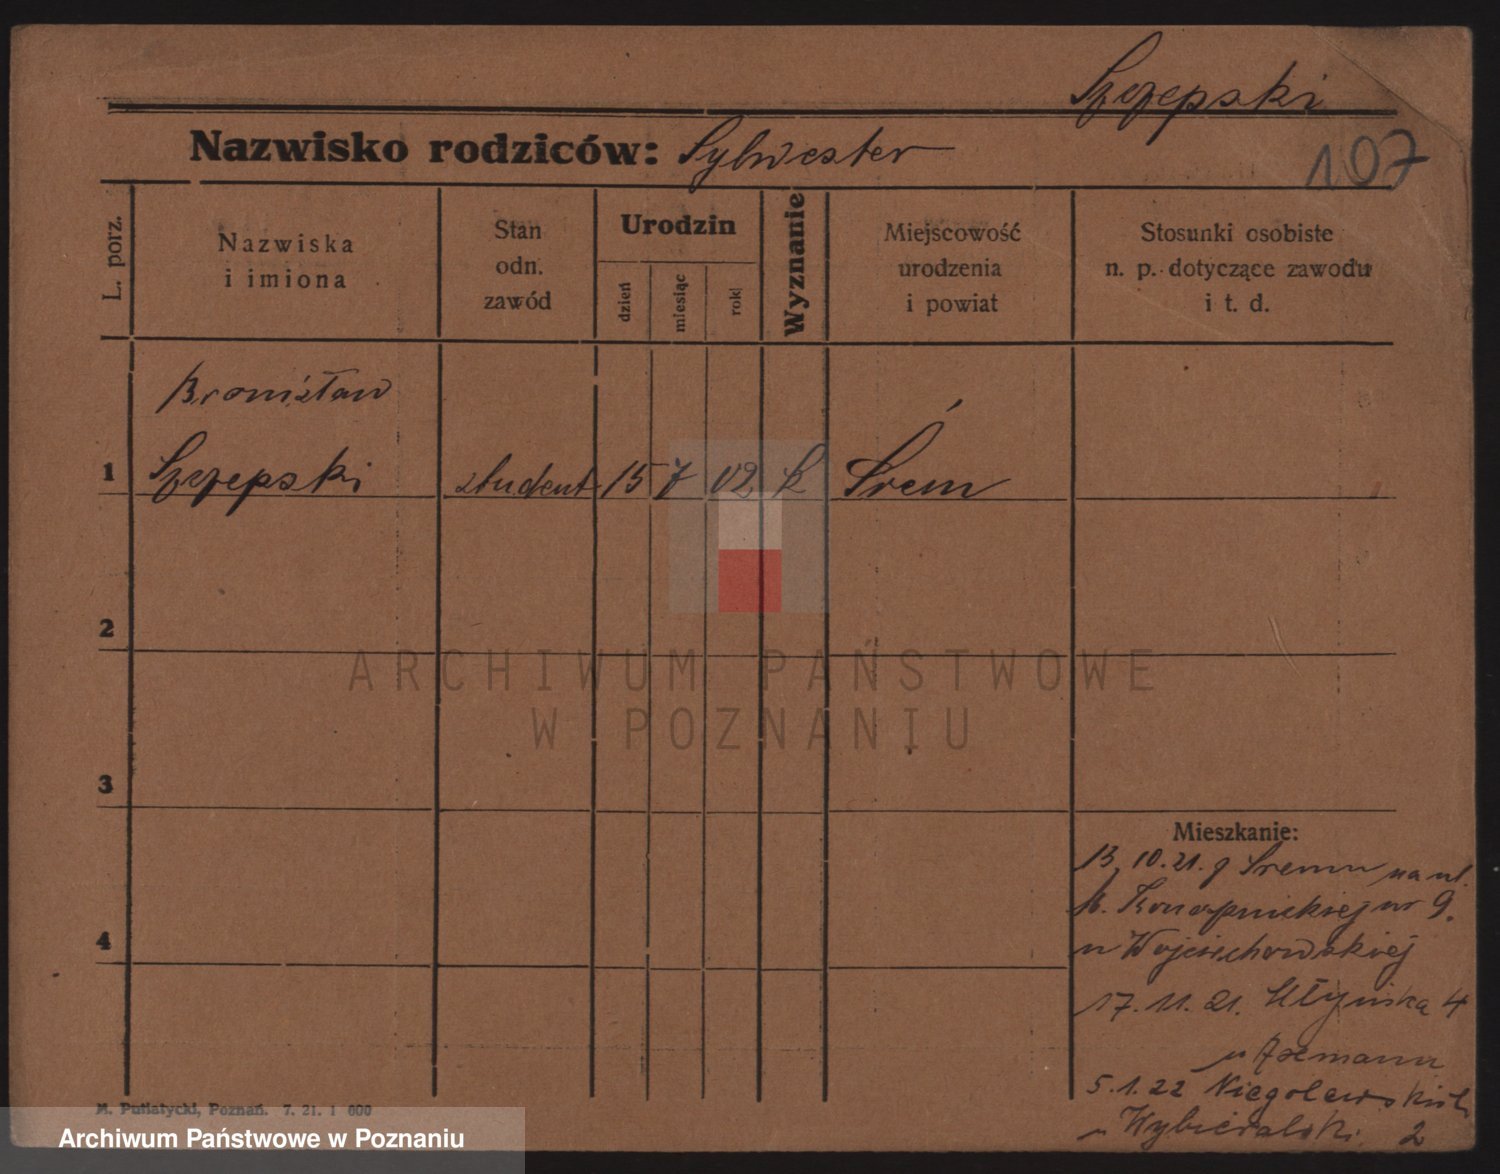 Szczepski
Nazwisko rodziców: Sylwester
107
L. porz.
Nazwiska
i imiona
Stan
odn.
zawód
Urodzin
dzień
miesiąc
rok
Wyznanie
Miejscowość
urodzenia
i powiat
Stosunki osobiste
n. p. dotyczące zawodu
i t. d.
Bronisław
1 Szczepski student 15 7 02 k Śrem
2
3
4
ARCHIWUM PAŃSTWOWE
W POZNANIU
Mieszkanie:
13.10.21. z Śremu na ul.
M. Konopnickiej nr 9.
u Wojciechowskiej
17.11.21. Młyńska 4
u
5.1.22 Niegolewskich
u Wybieralski 2
M. Putiatycki, Poznań. 7. 21. 1 000
Archiwum Państwowe w Poznaniu